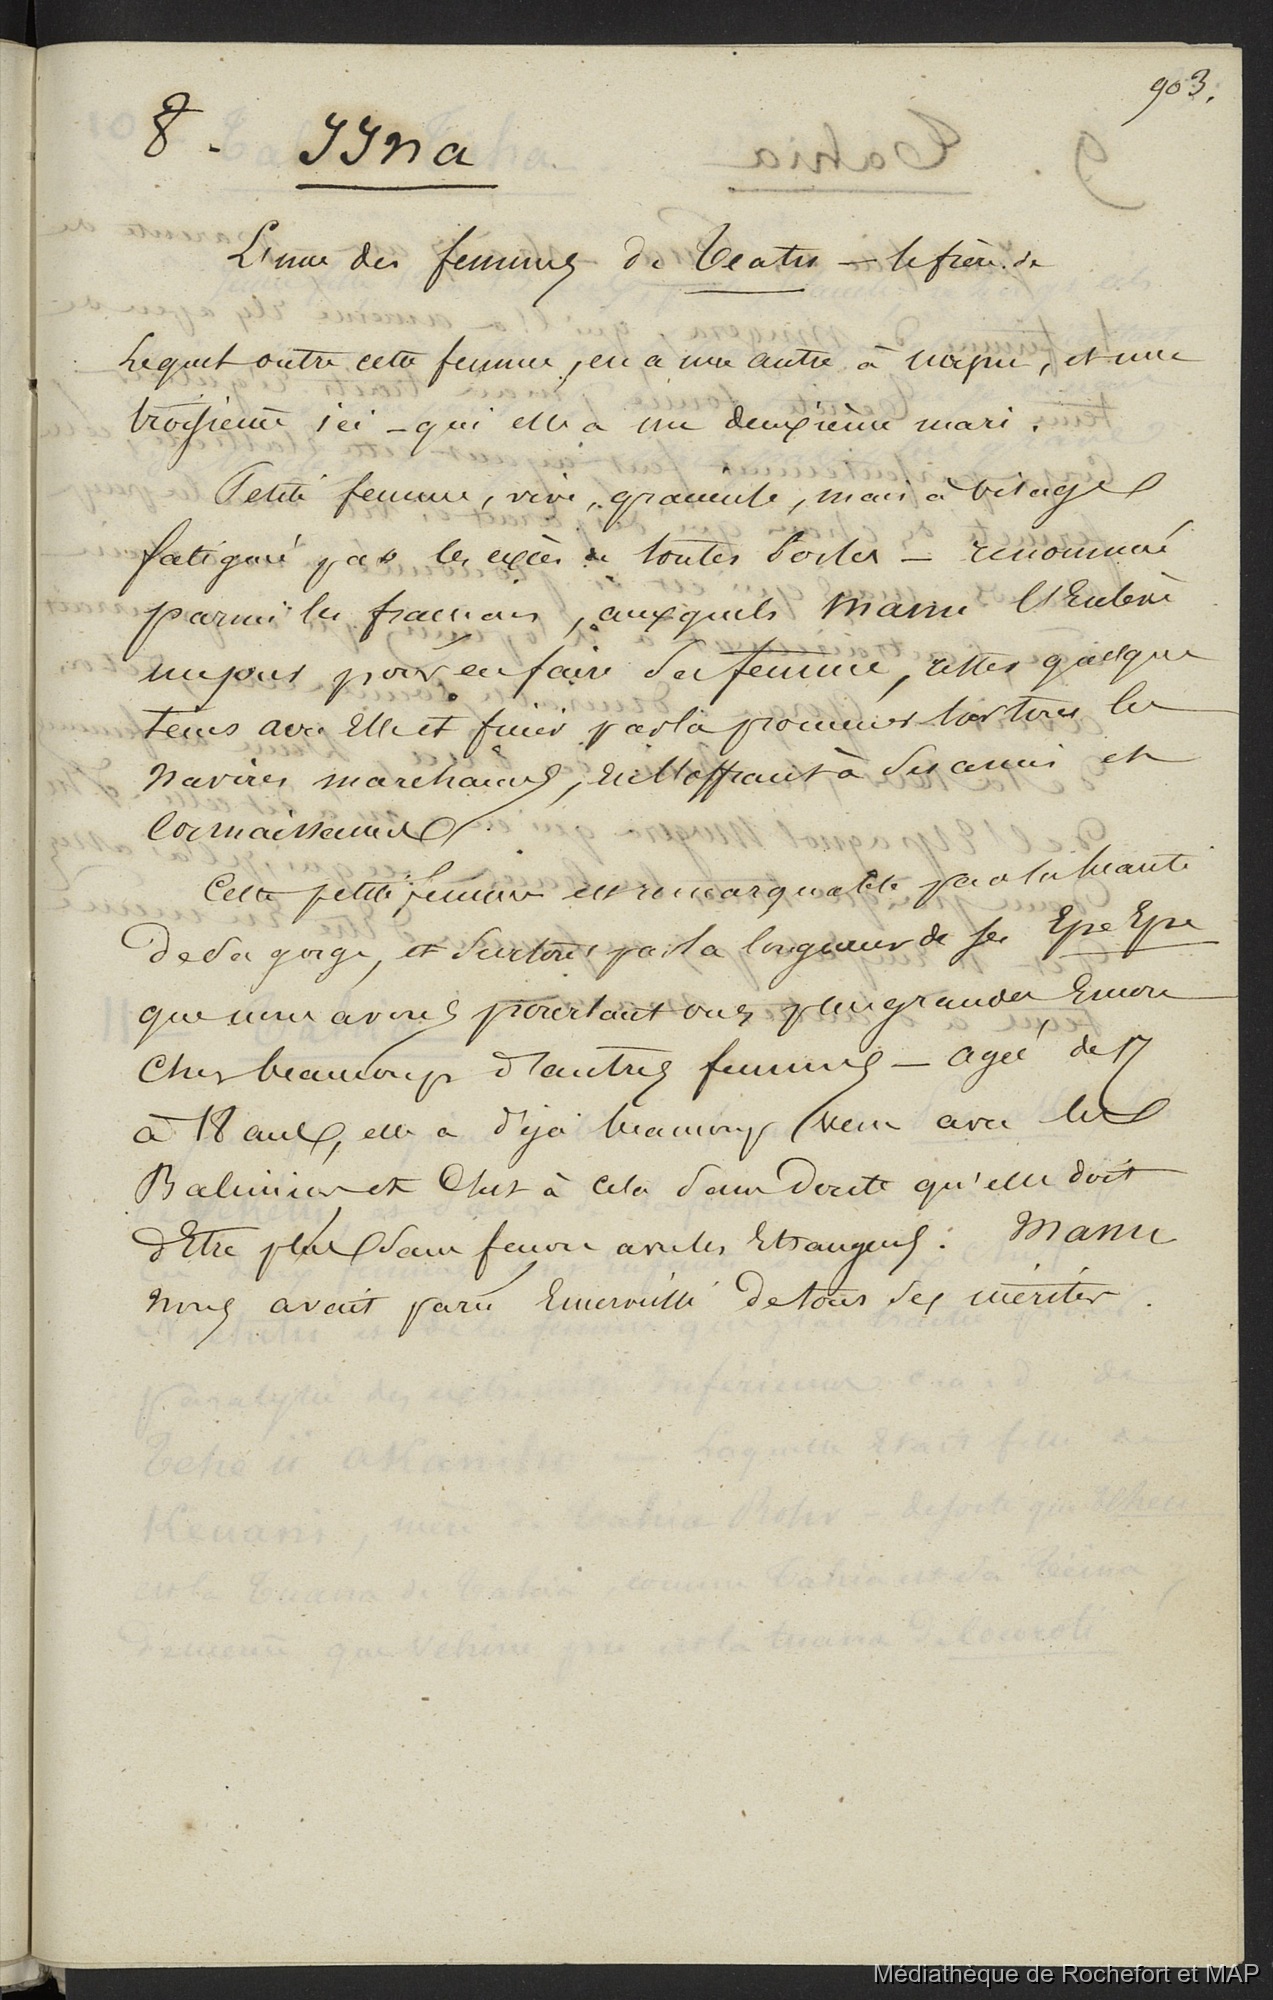 903.
8. YYna
L'une des femmes de Teatu — le frère de
Lequel outre cette femme, en a une autre à , et une
troisième ici — qui elle a un deuxième mari.
Petite femme, vive, gracieuse, mais à visage
fatigué par les excès de toutes sortes — renommée
parmi les français, auxquels Manu l'Enlève
un jour pour en faire sa femme, rester quelque
tems avec Elle et finir par la promener sur tous les
Navires marchands, en l'offrant à ses amis et
Connaissances.
Cette petite femme est remarquable par la beauté
De Sa gorge, et surtout par la longueur de ses Epe Epe
que nous avons pourtant vus plus grandes Encore
Chez beaucoup d'autres femmes — agée de 17
à 18 ans, elle a déjà beaucoup vécu avec les
Baliniers et C'est à cela sans Doute qu'elle doit
d'Etre plus sans façon avec les Etrangers. Manu
Nous avait paru Emerveillé de tous ses mérites.
Médiathèque de Rochefort et MAP